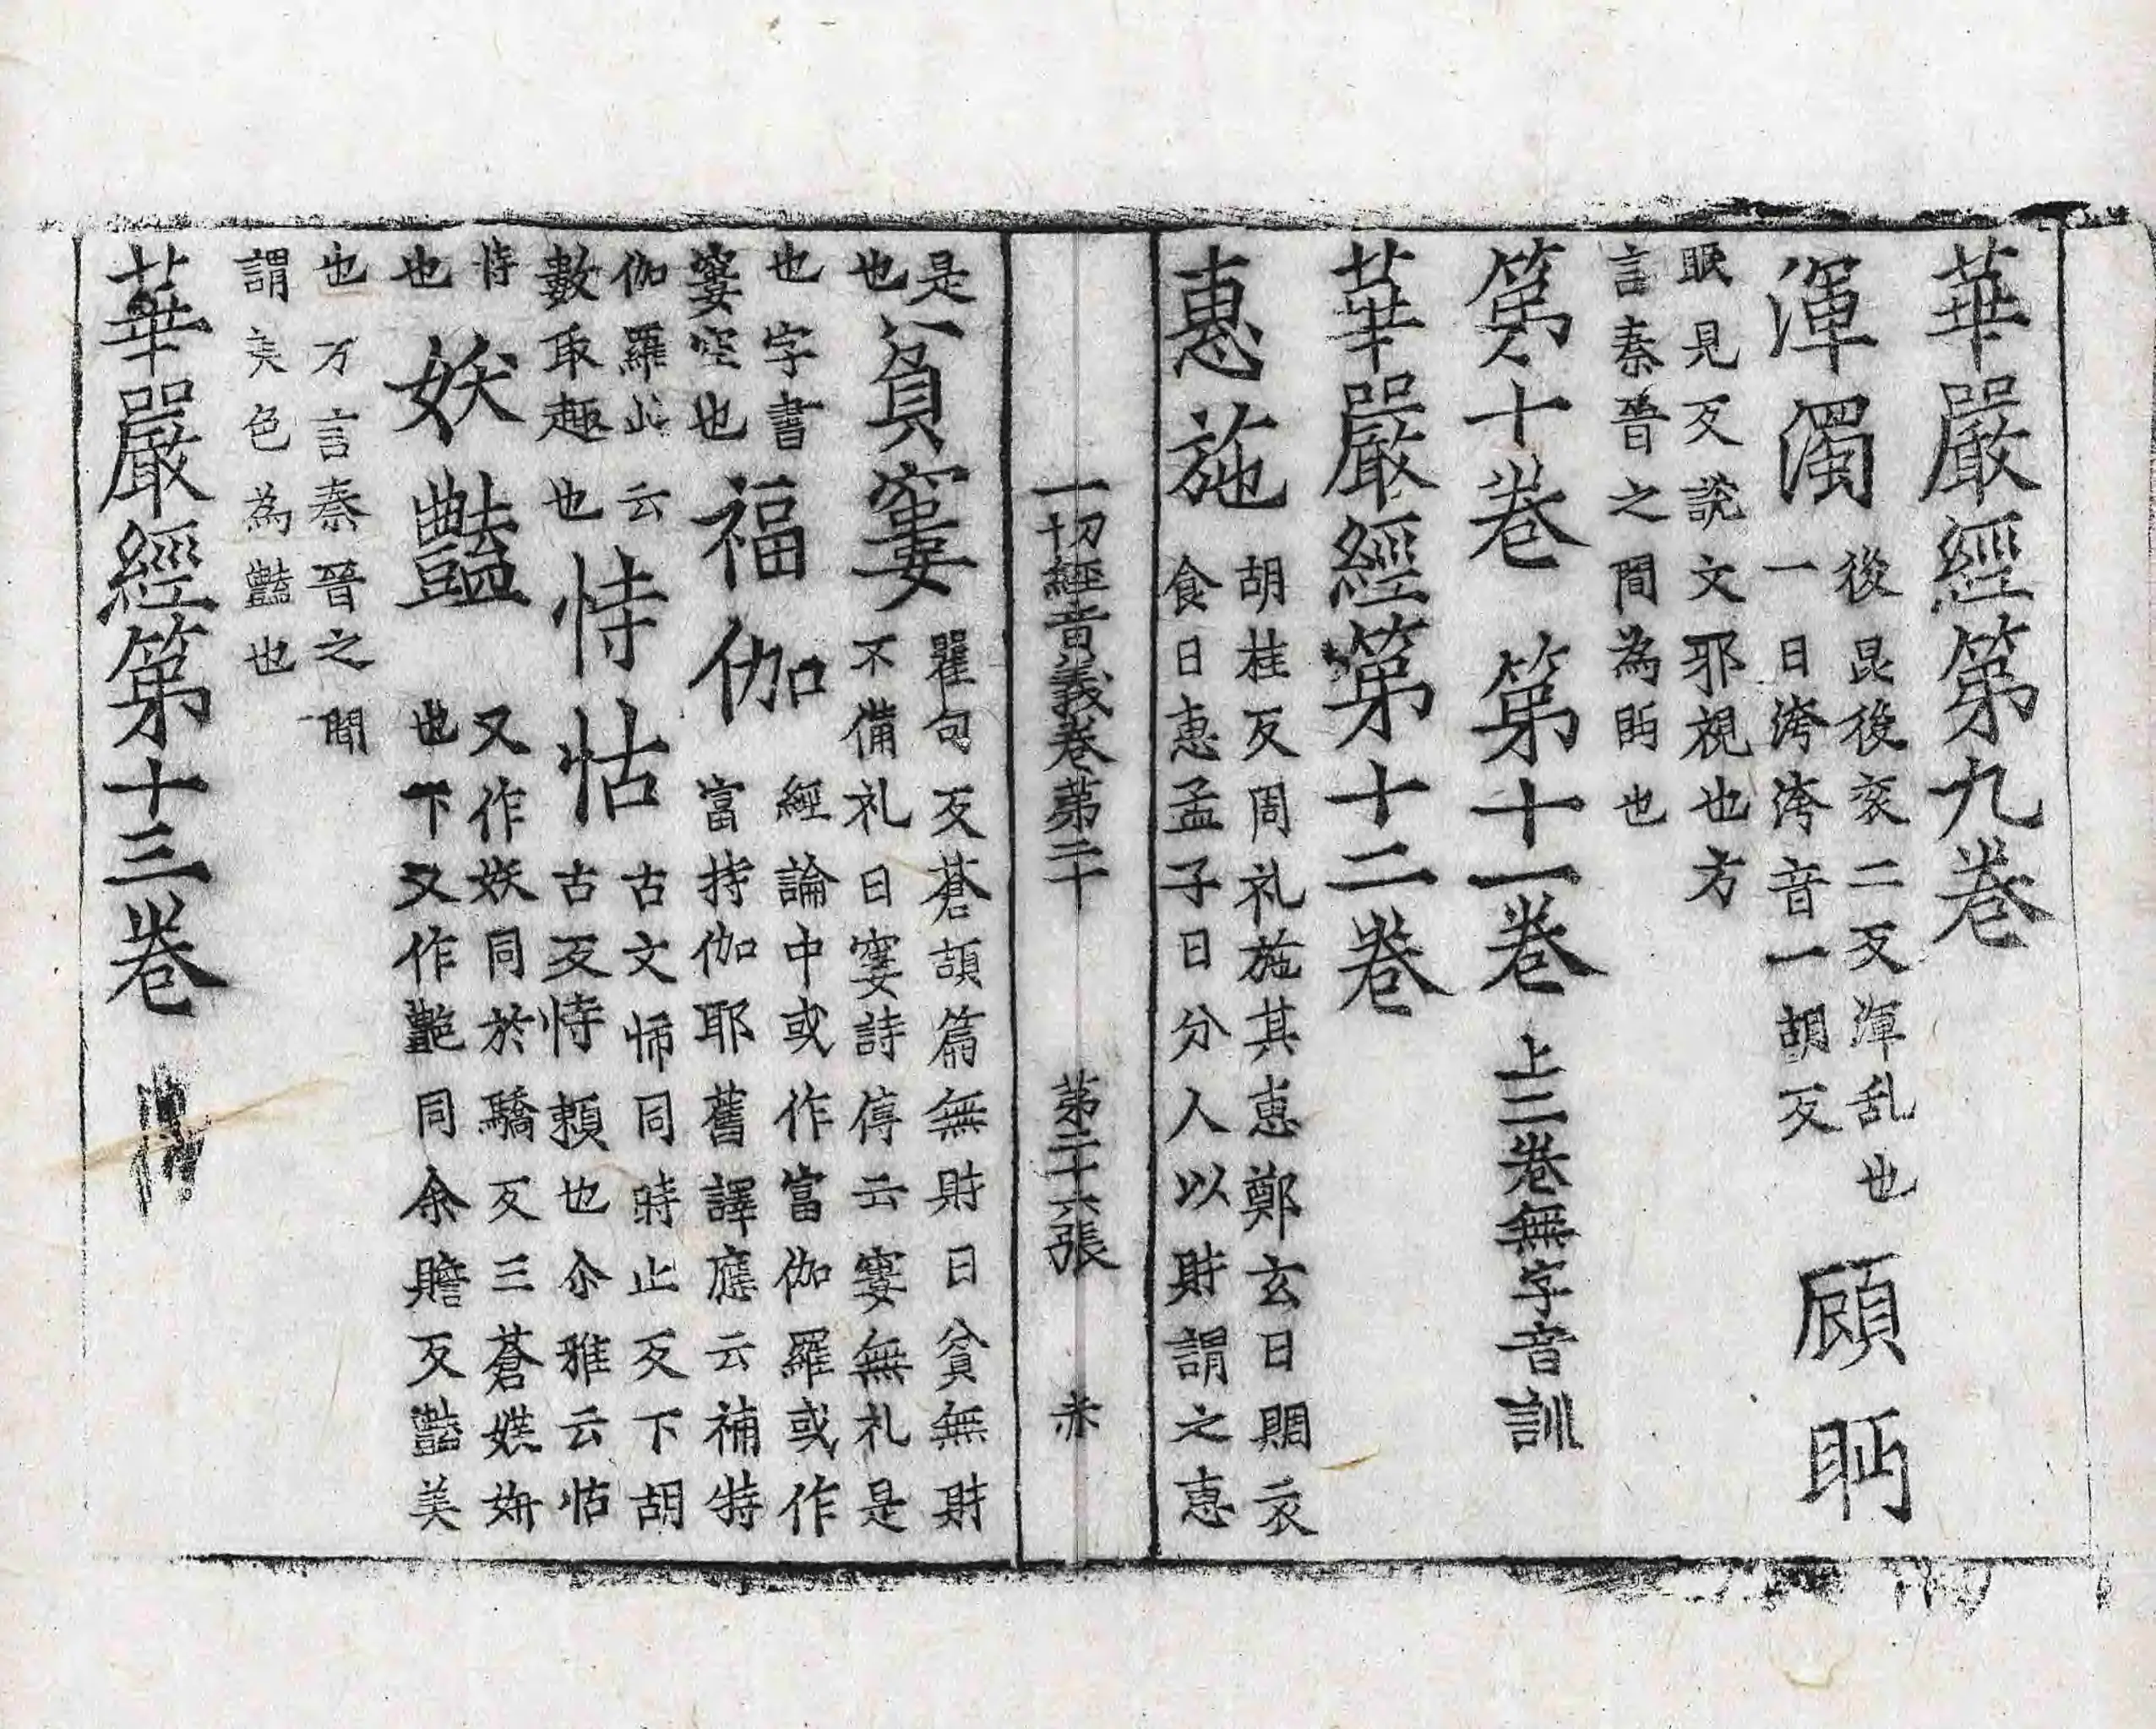 華嚴經第九卷
渾濁
後昆後衮二反渾乱也
一曰濁濁音一胡反
顧眄
眠見反說文邪視也方
言秦晉之間為眄也
第十卷 第十一卷 上二卷無字音訓
華嚴經第十二卷
惠施
胡桂反周礼施其惠鄭玄曰賙衣
食曰惠孟子曰分人以財謂之惠
一切經音義卷第二十 第二十六張
是
也
貧窶
瞿句反蒼頡篇無財曰貧無財
不備礼曰窶詩停云窶無礼是
也字書
窶空也
福伽
經論中或作富伽羅或作
富持伽耶舊譯應云補特
伽羅此云
數取趣也
恃怙
古文㤄同時止反下胡
古反恃頼也尒雅云怙
恃
也
妖豔
又作妖同於驕反三蒼媄妍
也下又作艷同余贍反豔美
也方言秦晉之間
謂美色為豔也
華嚴經第十三卷